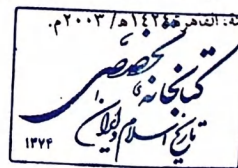 القاهرة ١٤٢٤ه/ ٢٠٠٣م.
کتابخانه تخصصی
تاریخ اسلام و ایران
۱۳۷۴